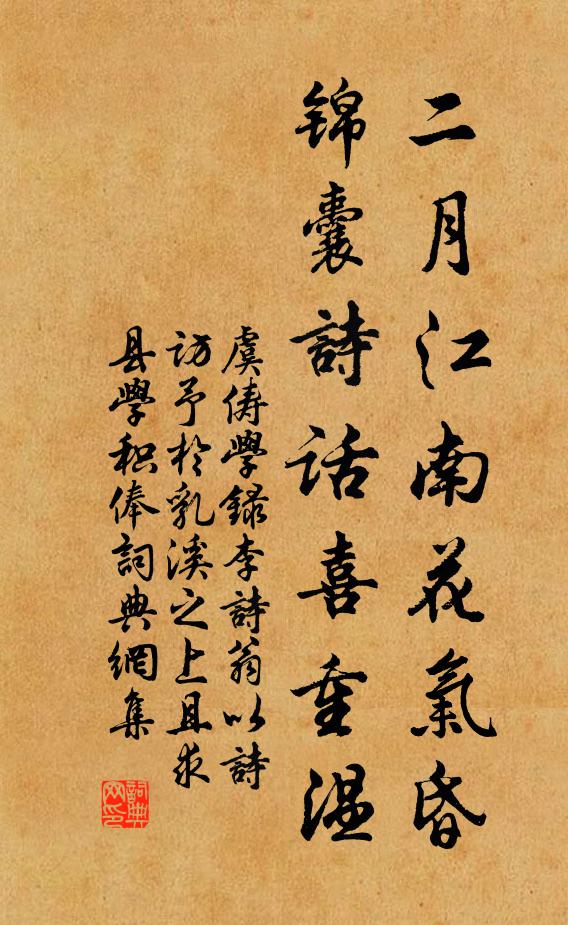 二月江南花氣昏
錦囊詩话喜重温
虞儔學録李詩翁以詩
访予於乳溪之上且求
县學积俸詞典網集
詞典
网印